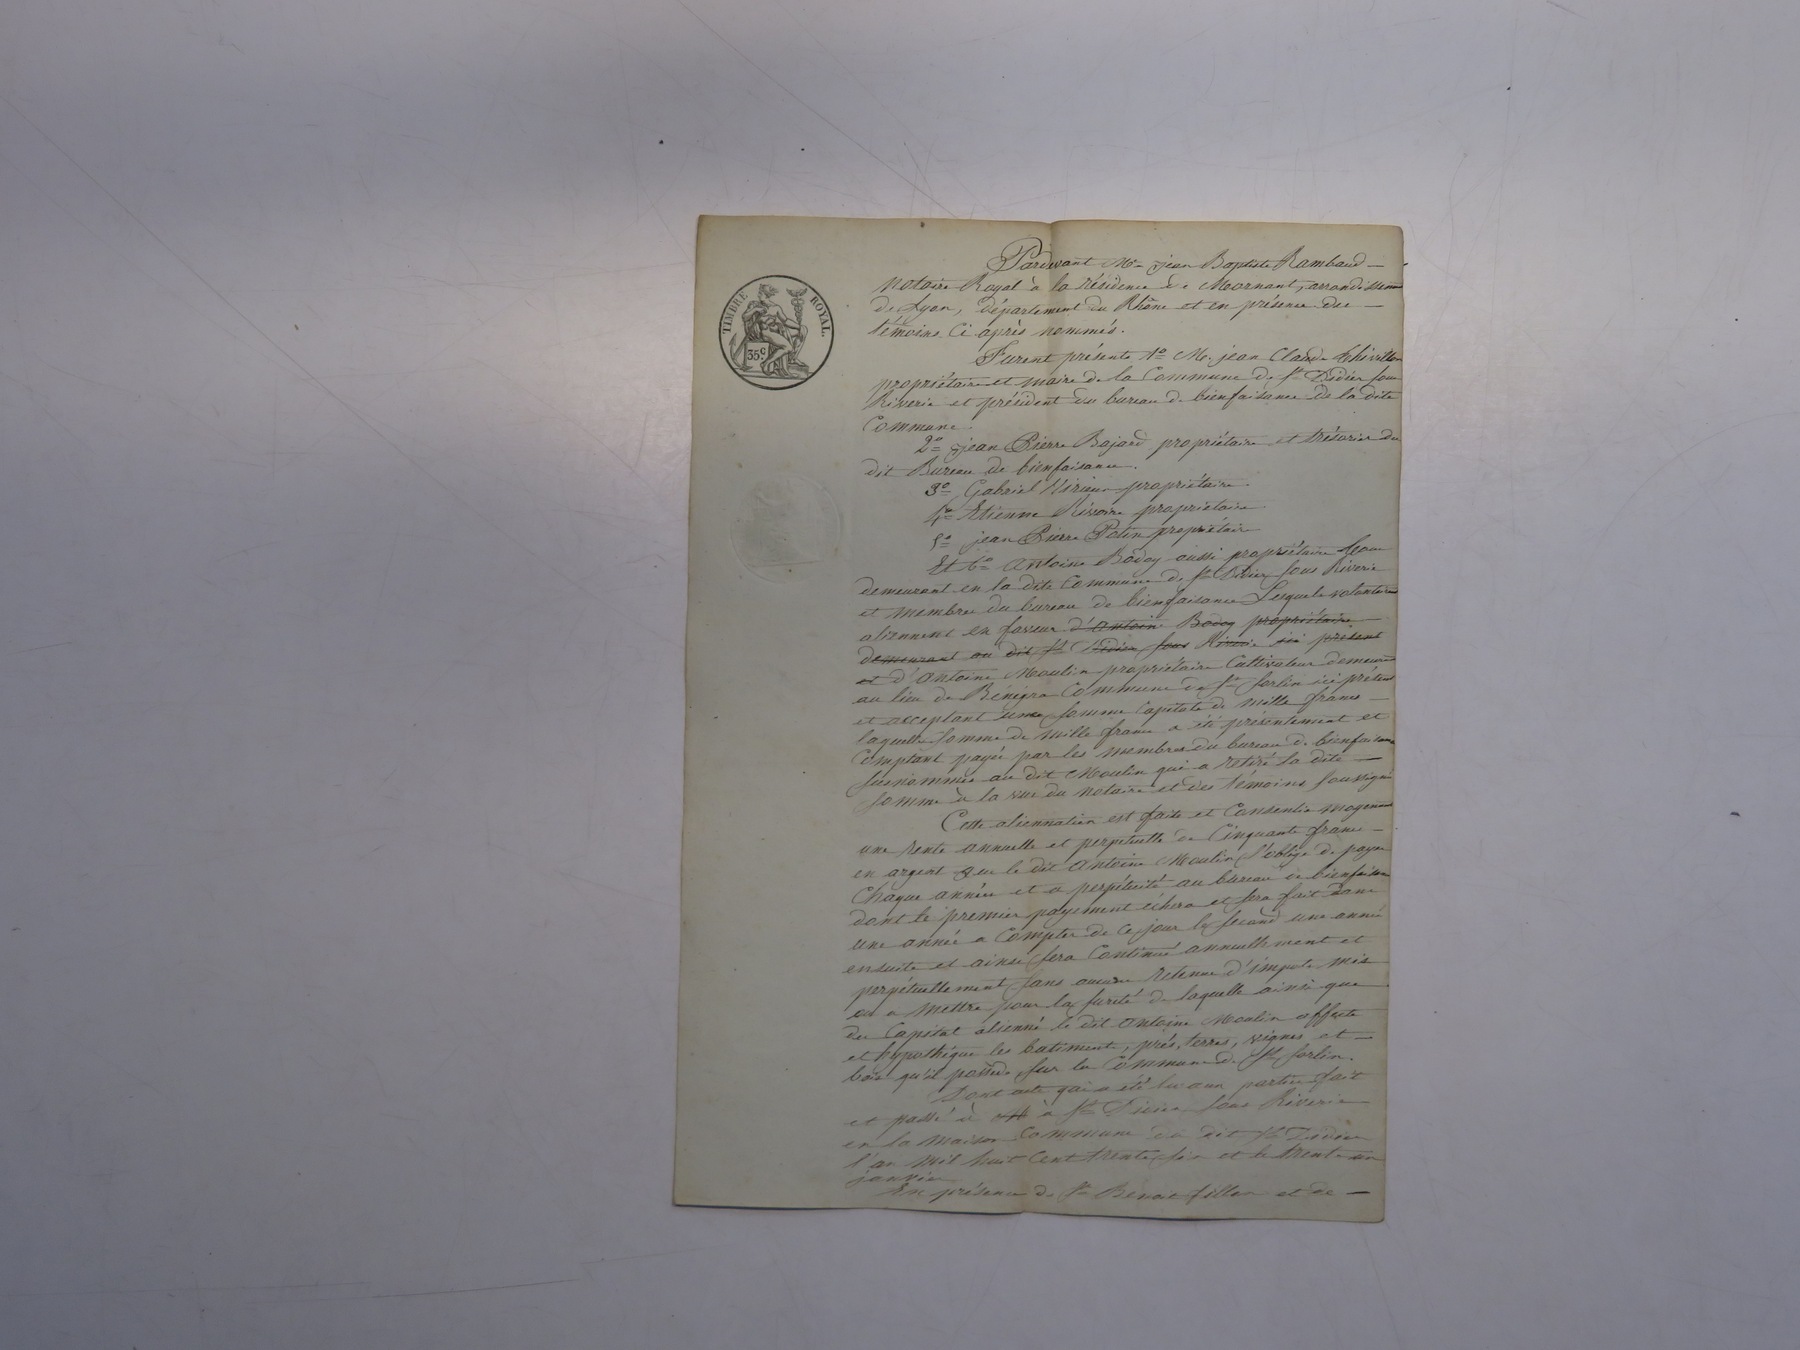 TIMBRE ROYAL.
35c
Pardevant Me jean Baptiste Rambaud —
notaire Royal à la résidence de Mornant, arrondissem
de Lyon, département du Rhône et en présence des —
témoins Ci après nommés.
Furent présents 1o M. jean Claude
propriétaire et maire de la Commune de St Didier sous
Riverie et président du bureau de bienfaisance de la dite
Commune.
2o jean Pierre Bajard propriétaire et trésorier du
dit Bureau de bienfaisance.
3o Gabriel propriétaire.
4o Etienne Rivoire propriétaire
5o jean Pierre Potin propriétair
Et 6o Antoine Badoy aussi propriétaire tous
demeurant en la dite Commune de St Didier sous Riverie
et membres du bureau de bienfaisance Lesquels volontaire
aliennent en faveur d'antoine Badoy propriétaire
demeurant au dit St Didier sous Riverie ici présent
et d'Antoine Moulin propriétaire Cultivateur demeurant
au lieu de Commune de St Sorlin ici présent
et acceptant une somme Capitale de mille francs —
laquelle somme de mille francs a été présentement et
Comptant payée par les membres du bureau de bienfaisance
susnommés au dit Moulin qui a retiré la dite —
somme à la vue du notaire et des témoins soussignés
Cette aliennation est faite et Consentie moyennant
une rente annuelle et perpetuelle de Cinquante francs —
en argent que le dit Antoine Moulin s'oblige de payer
Chaque année et a perpétuité au bureau de bienfaisance
dont le premier payement échera et sera fait dans
une année a Compter de Ce jour le second une année
ensuite et ainsi sera Continué annuellement et
perpétuellement sans aucune retenue d'impots mis
ou a mettre pour la sureté de laquelle ainsi que
du Capital alienné le dit Antoine Moulin affecte
et hypothéque les batiments, prés, terres, vignes et —
bois qu'il possède sur la Commune de St Sorlin.
Dont acte qui a été lu aux parties fait
et passé à à St Didier sous Riverie
en la maison Commune du dit St Didier
l'an mil huit Cent trente six et le trente un
janvier
En présence de Sr Benoit fillon et de —